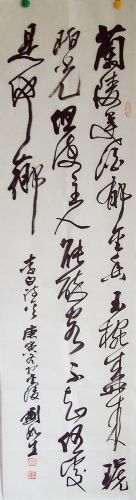 蘭陵美酒郁金香玉椀盛来琥
珀光但使主人能醉客不知何處
是他鄉
李白詩